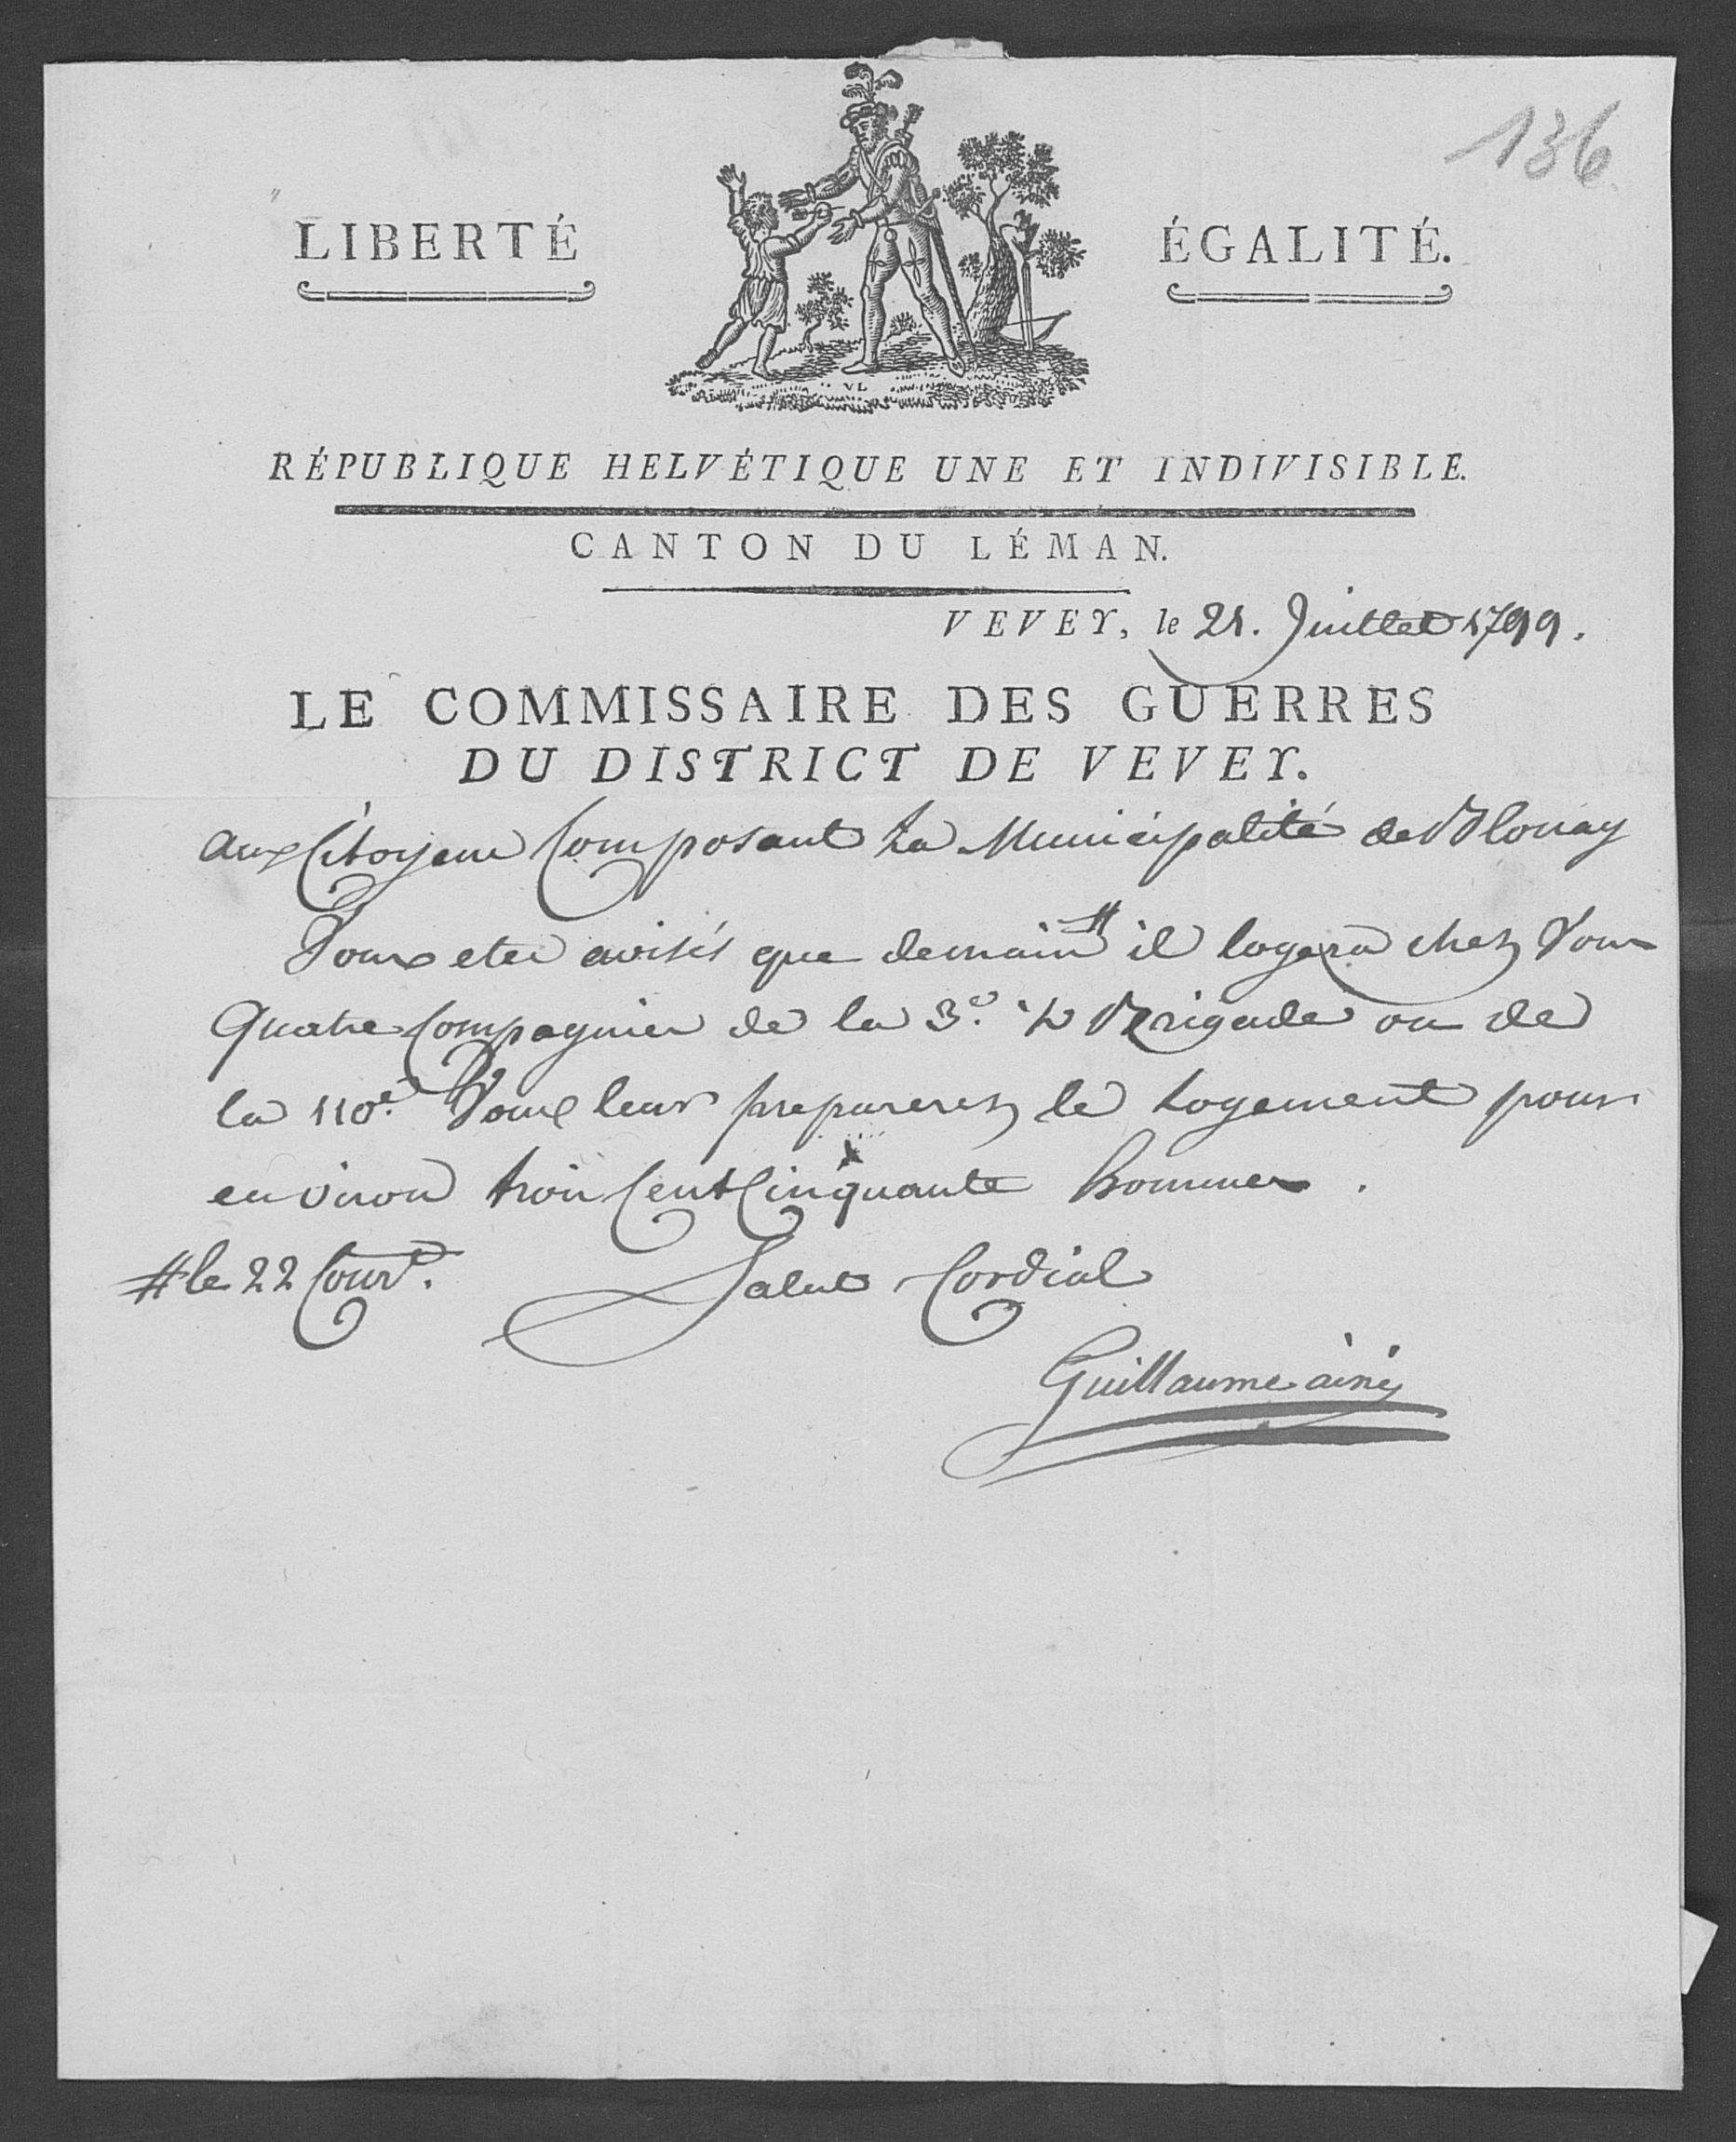 136
LIBERTÉ
ÉGALITÉ.
VL
RÉPUBLIQUE HELVÉTIQUE UNE ET INDIVISIBLE.
CANTON DU LÉMAN.
VEVEY, le 21. Juillet 1799.
LE COMMISSAIRE DES GUERRES
DU DISTRICT DE VEVEY.
aux Citoyens Composant La Municipalité de Blonay
Vous etes avisés que demain # il logera chez Vous
Quatre Compagnies de la 3.e 1/2 Brigade ou de
la 110e. Vous leur preparerez le Logement pour
environ trois Cent Cinquante hommes.
# le 22 Court.
Salut Cordial
Guillaume ainé